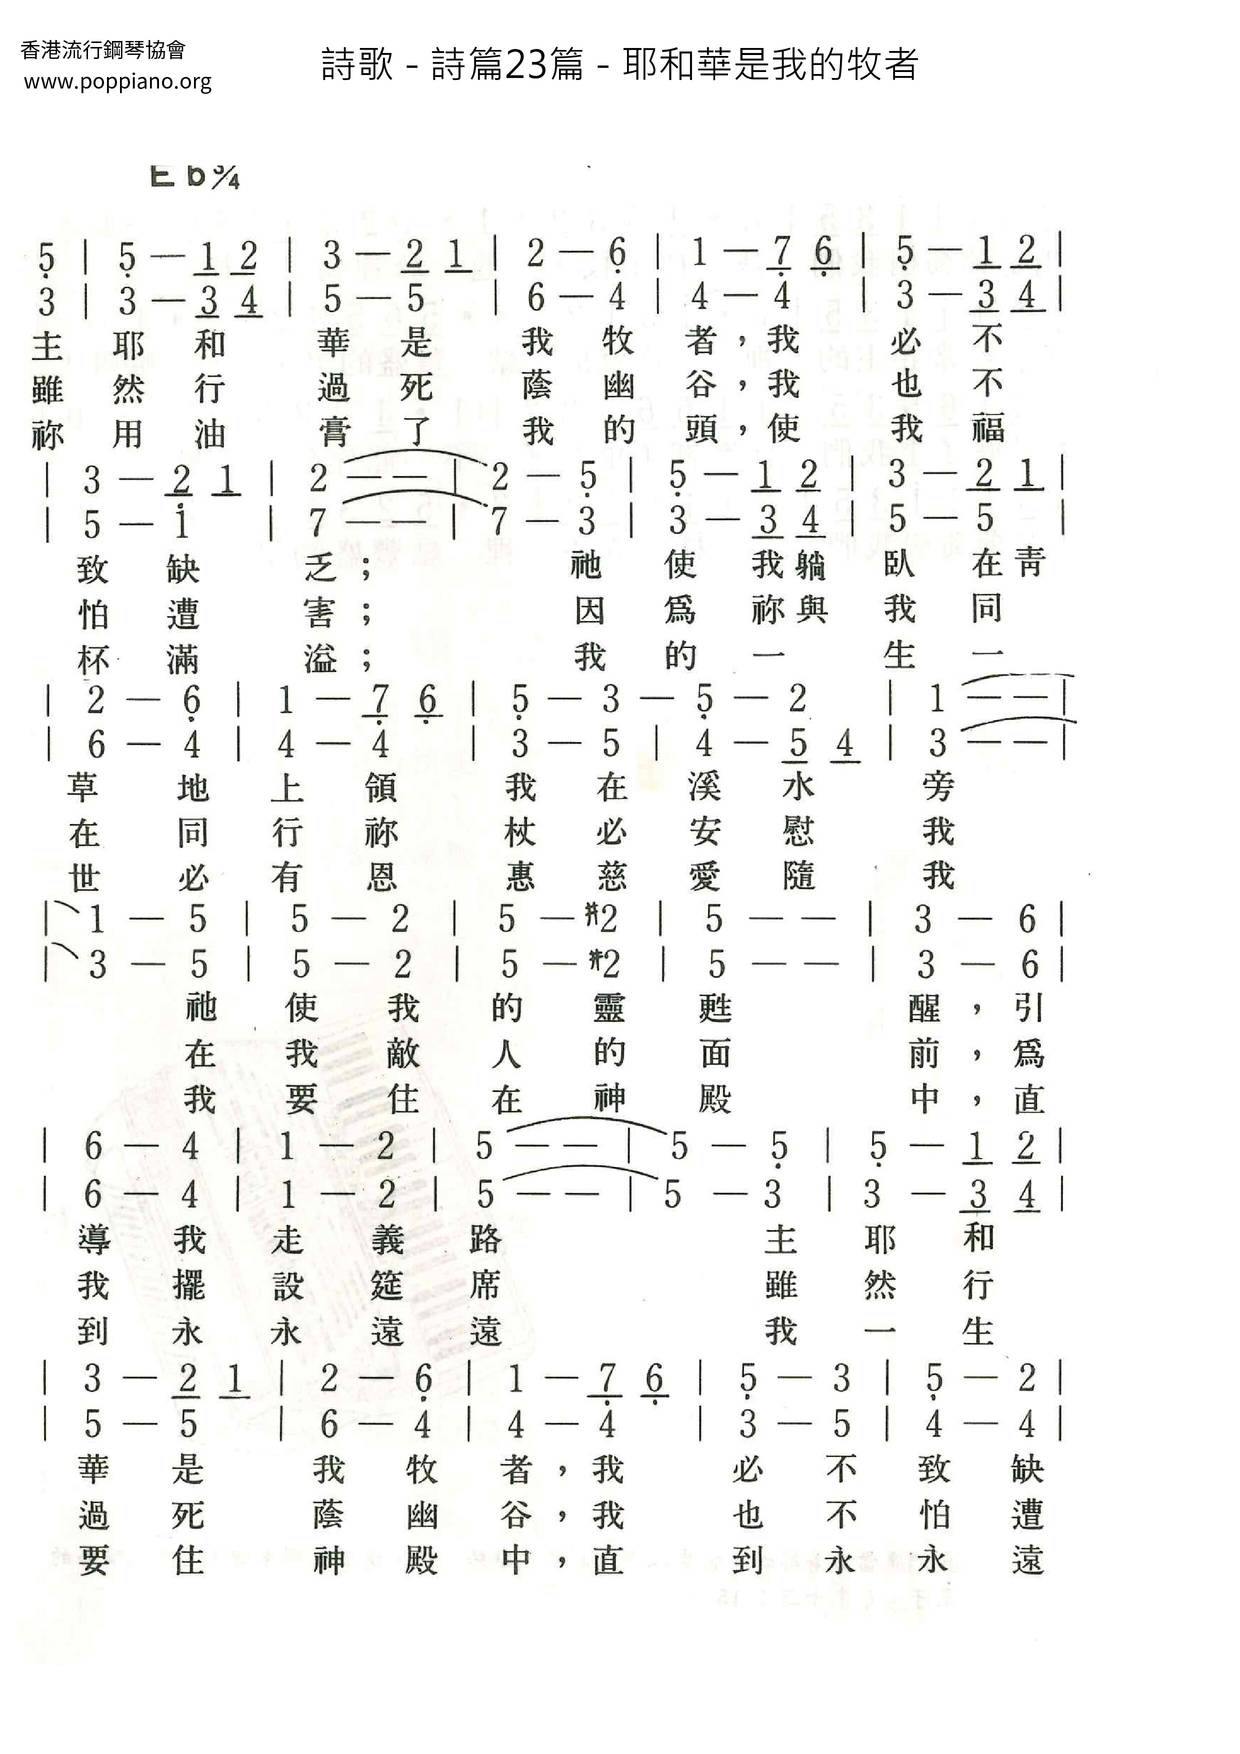 香港流行鋼琴協會
www.poppiano.org
詩歌 - 詩篇23篇 - 耶和華是我的牧者
E b 3/4
5̣ | 5̣ — 1 2 | 3 — 2 1 | 2 — 6̣ | 1 — 7̣ 6̣ | 5̣ — 1 2 |
3 | 3 — 3 4 | 5 — 5 | 6 — 4 | 4 — 4 | 3 — 3 4 |
主 耶 和 華 是 我 牧 者，我 必 不
雖 然 行 過 死 蔭 幽 谷，我 也 不
祢 用 油 膏 了 我 的 頭，使 我 福
| 3 — 2 1 | 2 — — | 2 — 5̣ | 5̣ — 1 2 | 3 — 2 1 |
| 5 — 1̇ | 7 — — | 7 — 3 | 3 — 3 4 | 5 — 5 |
致 缺 乏； 祂 使 我 躺 臥 在 青
怕 遭 害； 因 爲 祢 與 我 同
杯 滿 溢； 我 的 一 生 一
| 2 — 6̣ | 1 — 7̣ 6̣ | 5̣ — 3 — 5̣ — 2 | 1 — — |
| 6 — 4 | 4 — 4 | 3 — 5 | 4 — 5 4 | 3 — — |
草 地 上 領 我 在 溪 水 旁
在 同 行 祢 杖 必 安 慰 我
世 必 有 恩 惠 慈 愛 隨 我
| 1 — 5 | 5 — 2 | 5 — #2 | 5 — — | 3 — 6 |
| 3 — 5 | 5 — 2 | 5 — #2 | 5 — — | 3 — 6 |
祂 使 我 的 靈 甦 醒，引
在 我 敵 人 的 面 前，爲
我 要 住 在 神 殿 中，直
| 6 — 4 | 1 — 2 | 5 — — | 5 — 5̣ | 5̣ — 1 2 |
| 6 — 4 | 1 — 2 | 5 — — | 5 — 3 | 3 — 3 4 |
導 我 走 義 路 主 耶 和
我 擺 設 筵 席 雖 然 行
到 永 永 遠 遠 我 一 生
| 3 — 2 1 | 2 — 6̣ | 1 — 7̣ 6̣ | 5̣ — 3 | 5̣ — 2 |
| 5 — 5 | 6 — 4 | 4 — 4 | 3 — 5 | 4 — 4 |
華 是 我 牧 者，我 必 不 致 缺
過 死 蔭 幽 谷，我 也 不 怕 遭
要 住 神 殿 中，直 到 永 永 遠